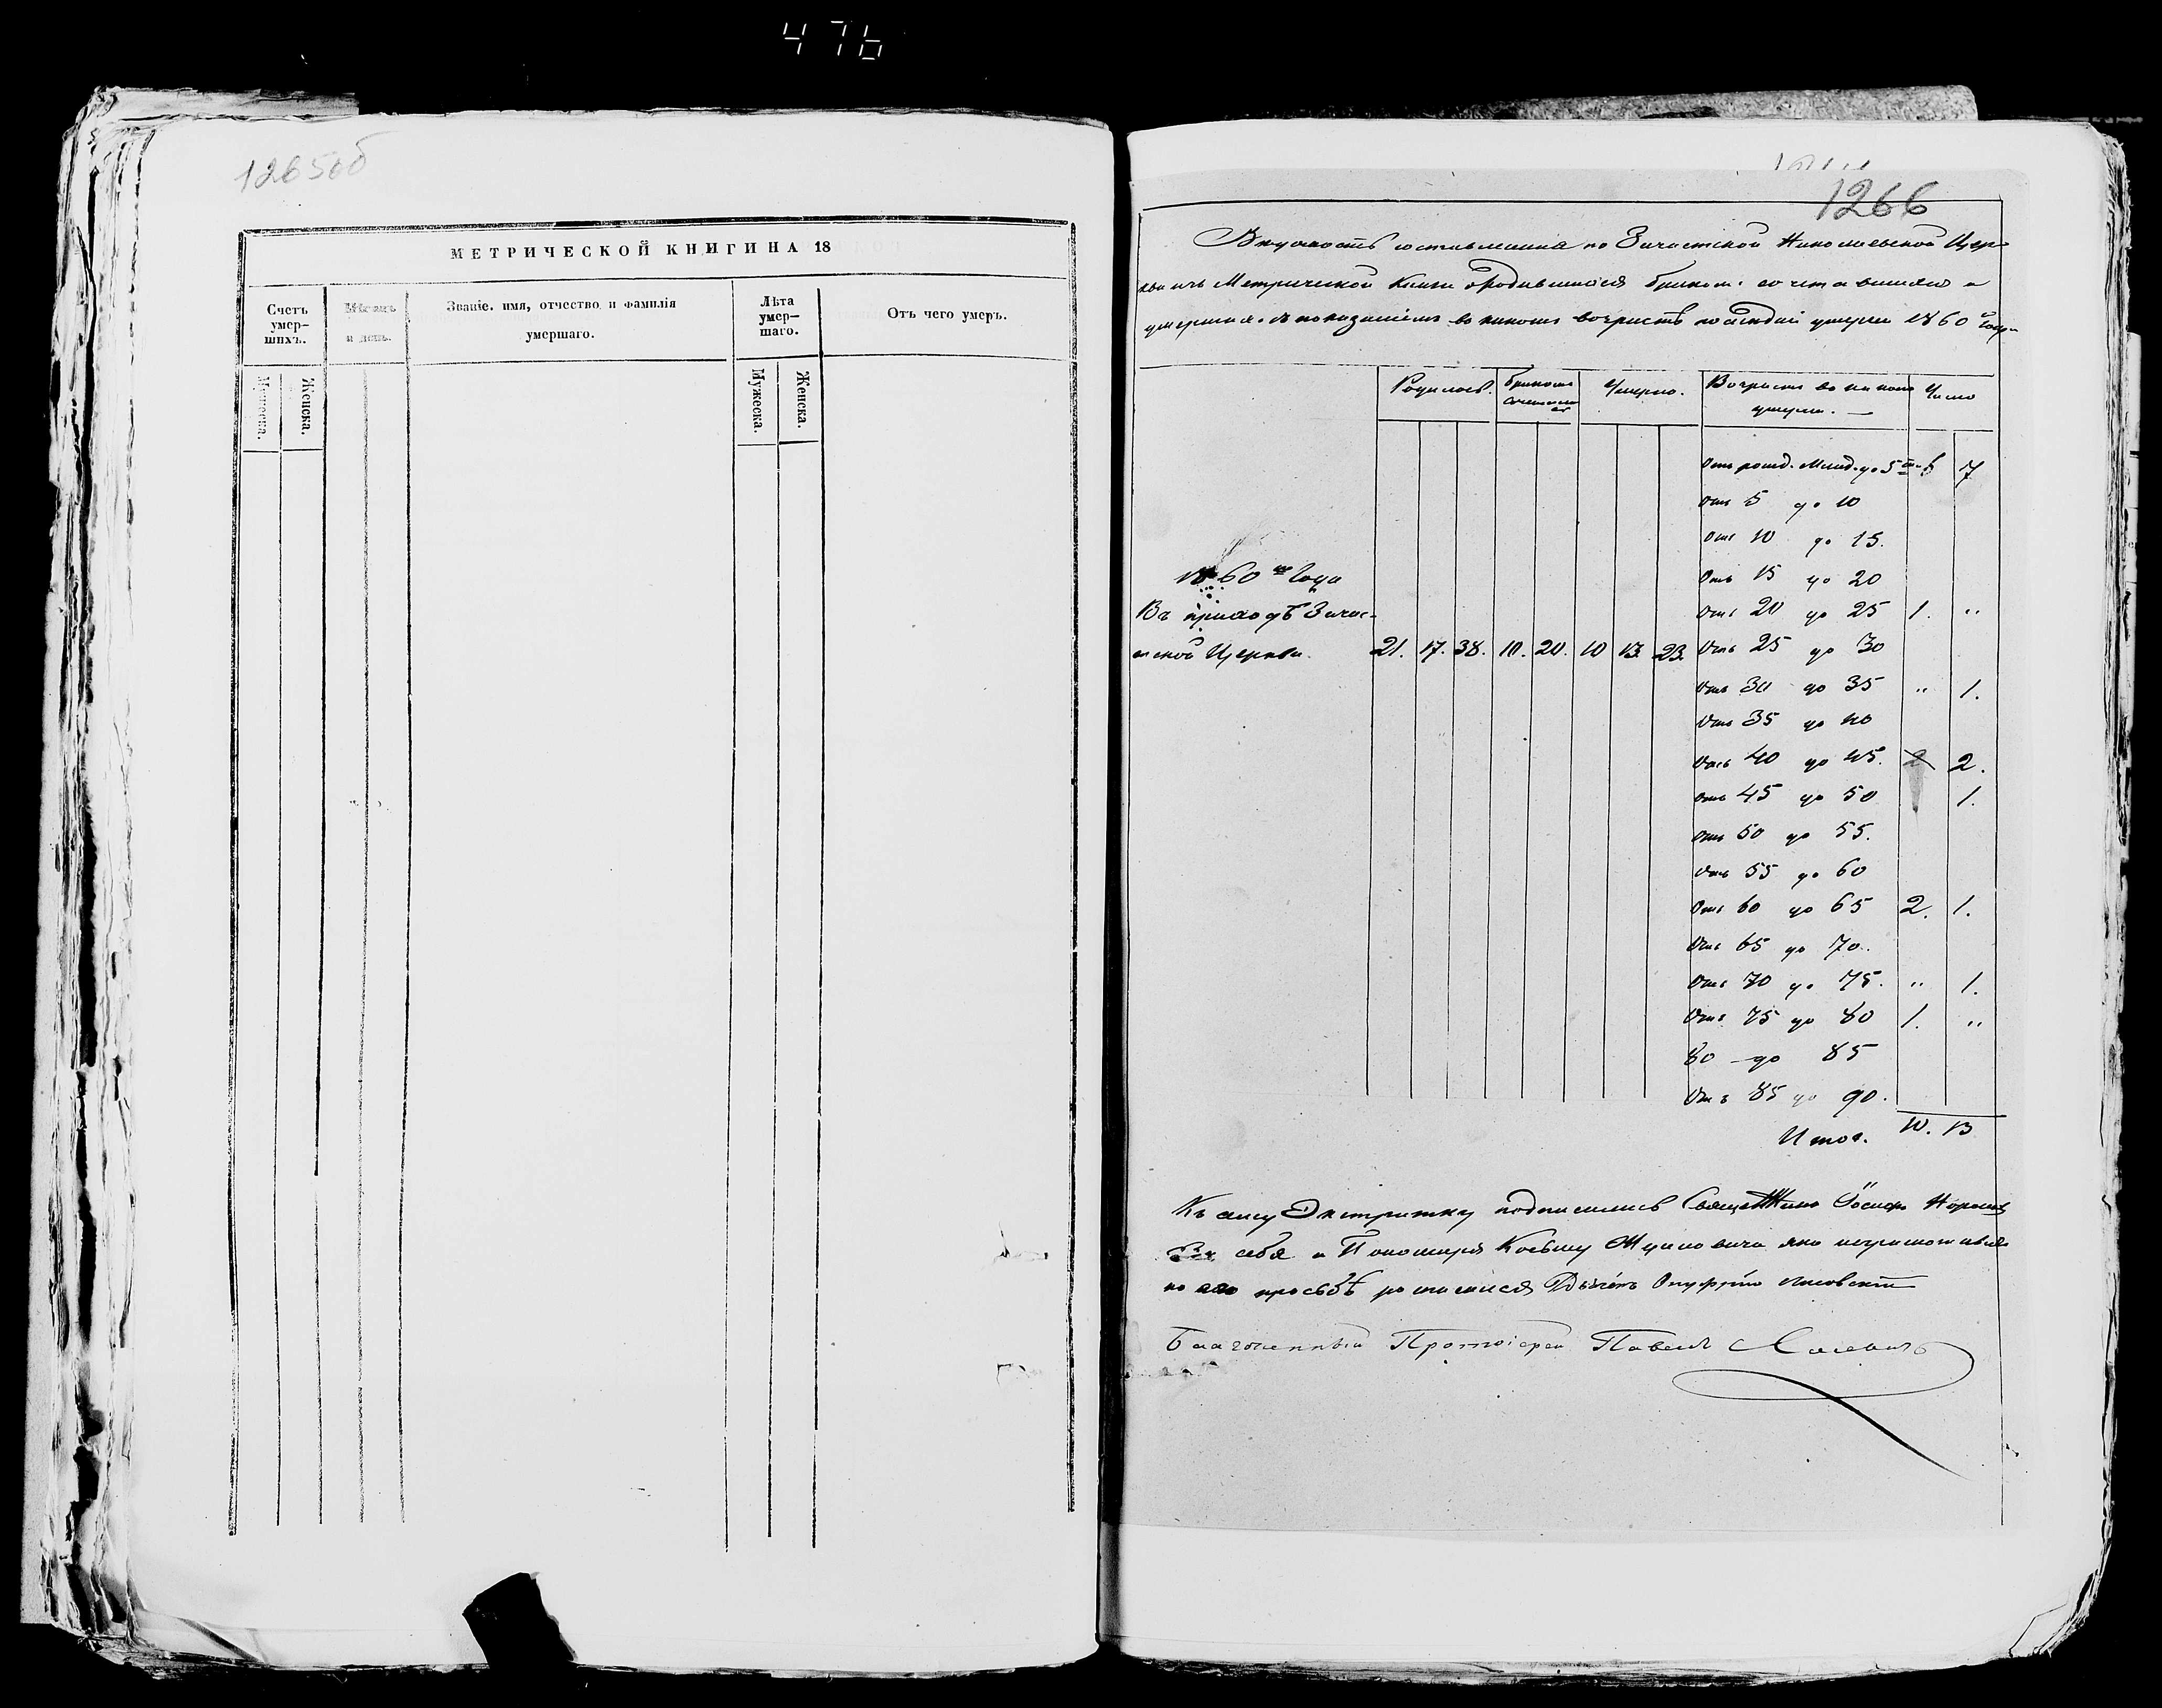 476
1265об
МЕТРИЧЕСКОЙ КНИГИНА 18
Счетъ умер-шихъ.
Мѣсяцъ и день.
Званіе. имя, отчество, и фамилія умершаго.
Лѣта умер-шаго.
Отъ чего умеръ.
Мужеска.
Женска.
Мужеска.
Женска.
1266
составленная по Зачистской Николаевской Цер-
кви изъ Метрической Книги о родившихся бракомъ сочетавшихся и
умершихъ съ показаніемъ во какомъ возрастѣ умерли 1860 года
Родилось.
Бракомъ
Умерло.
Возрастъ во какомъ умерли.
Число
Отъ рожд. Млад. до 5 6 7
Отъ 5 до 10
Отъ 10 до 15.
Отъ 15 до 20
Отъ 20 до 25 1. "
1860 Года
Въ приходѣ Зачис-
тской Церкви. 21. 17. 38. 10. 20. 10 13. 23. Отъ 25 до 30
Отъ 30 до 35 " 1.
Отъ 35 до 40
Отъ 40 до 45. 2 2.
Отъ 45 до 50 1.
Отъ 50 до 55.
Отъ 55 до 60
Отъ 60 до 65 2. 1.
Отъ 65 до 70.
Отъ 70 до 75. " 1.
Отъ 75 до 80 1. "
80 — до 85
Отъ 85 до 90.
Итог. 10. 13
Къ сему Экстракту подписались Іосифъ
За себя и Пономаря Косьму
по его просьбѣ росписался Дьячёкъ Онуфрій Лисовскій
Благочинный Протоіерей Павелъ